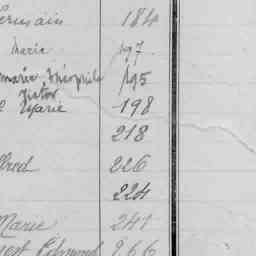 Germain 184
Marie 197
marie Théophile 195
Victor
Marie 198
218
lfred 226
224
Marie 241
Edmond 266